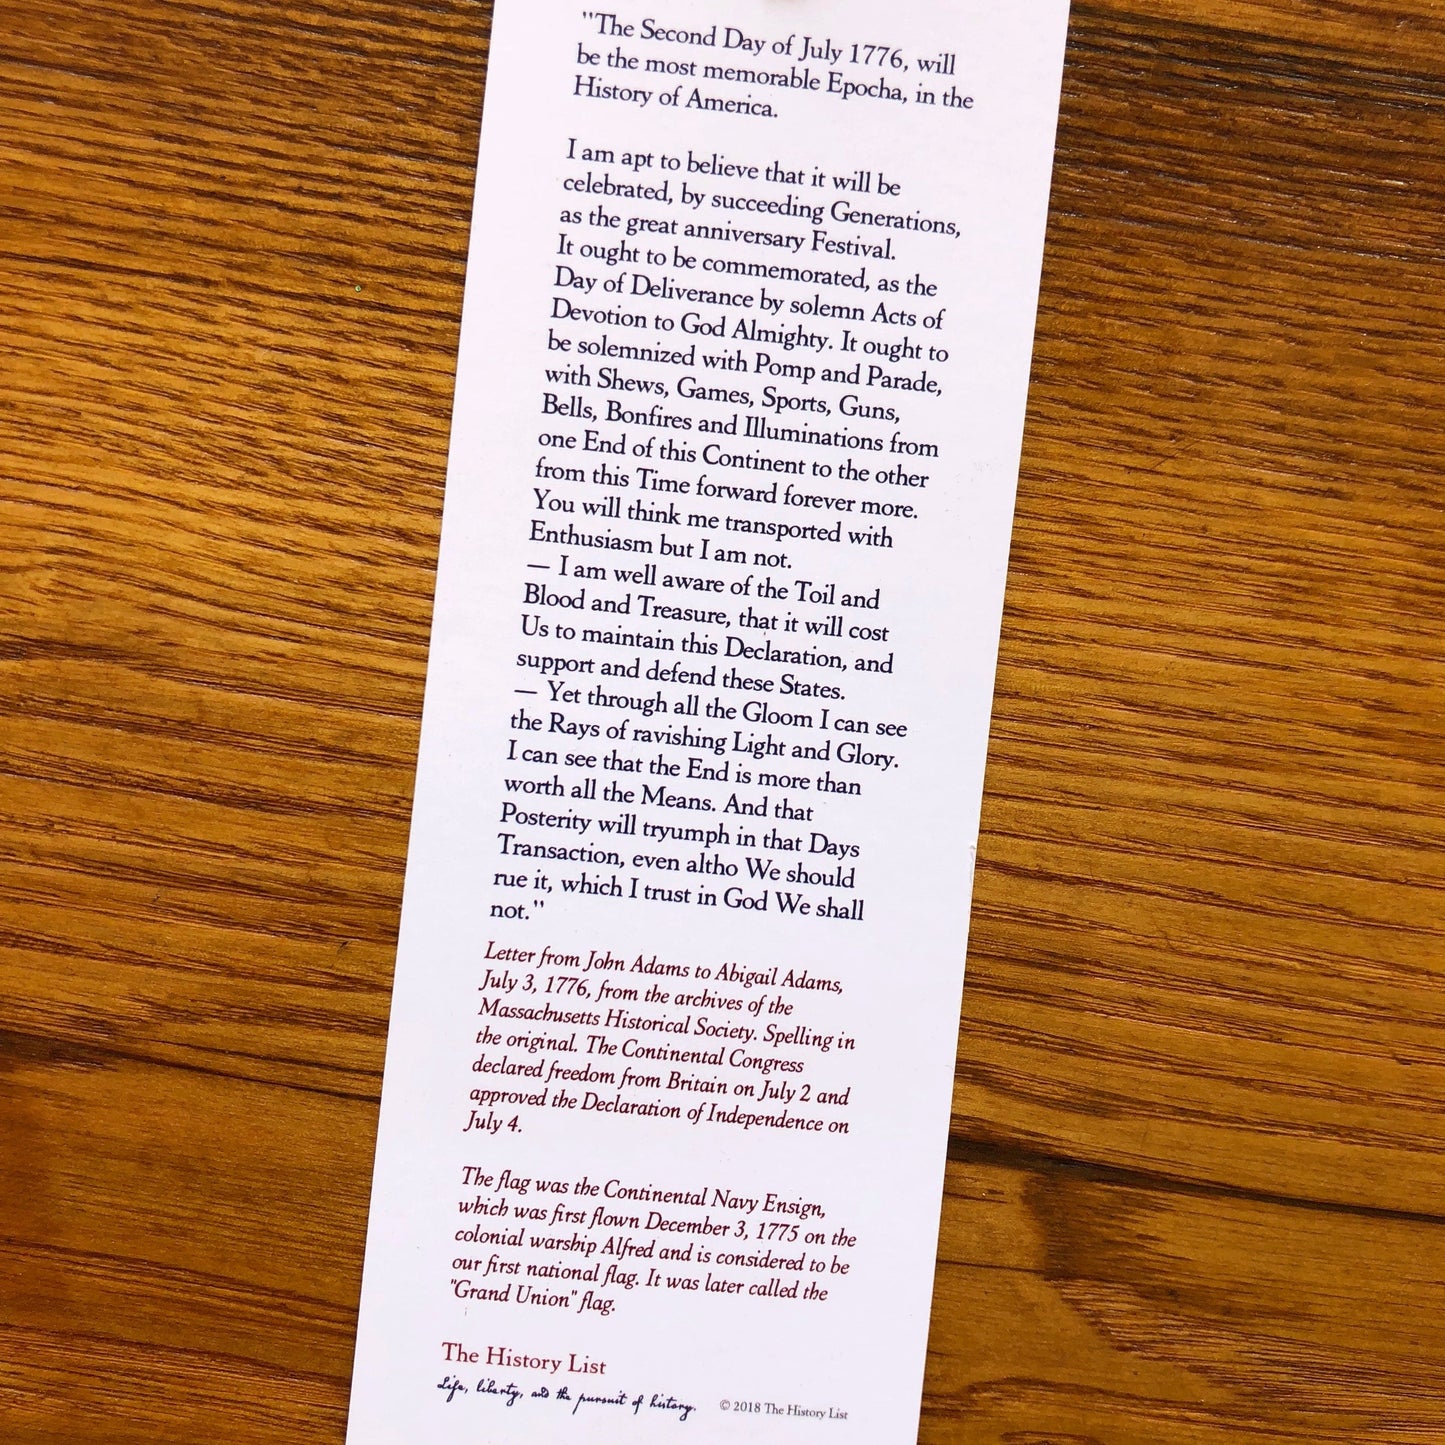 "The Second Day of July 1776, will
be the most memorable Epocha, in the
History of America.
I am apt to believe that it will be
celebrated, by succeeding Generations,
as the great anniversary Festival.
It ought to be commemorated, as the
Day of Deliverance by solemn Acts of
Devotion to God Almighty. It ought to
be solemnized with Pomp and Parade,
with Shews, Games, Sports, Guns,
Bells, Bonfires and Illuminations from
one End of this Continent to the other
from this Time forward forever more.
You will think me transported with
Enthusiasm but I am not.
— I am well aware of the Toil and
Blood and Treasure, that it will cost
Us to maintain this Declaration, and
support and defend these States.
— Yet through all the Gloom I can see
the Rays of ravishing Light and Glory.
I can see that the End is more than
worth all the Means. And that
Posterity will tryumph in that Days
Transaction, even altho We should
rue it, which I trust in God We shall
not."
Letter from John Adams to Abigail Adams,
July 3, 1776, from the archives of the
Massachusetts Historical Society. Spelling in
the original. The Continental Congress
declared freedom from Britain on July 2 and
approved the Declaration of Independence on
July 4.
The flag was the Continental Navy Ensign,
which was first flown December 3, 1775 on the
colonial warship Alfred and is considered to be
our first national flag. It was later called the
"Grand Union" flag.
The History List
Life, liberty, and the pursuit of history.
© 2018 The History List